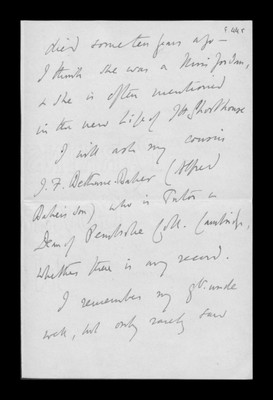 died some ten years ago —
I think she was a Miss Jordan,
& she is often mentioned
in the new Life of JH Shorthouse
I will ask my cousin
J. F. Bethune-Baker (Alfred
Baker's son) who is Tutor &
Dean of Pembroke Coll. Cambridge,
whether there is any record.
I remember my gt. uncle
well, but only rarely saw